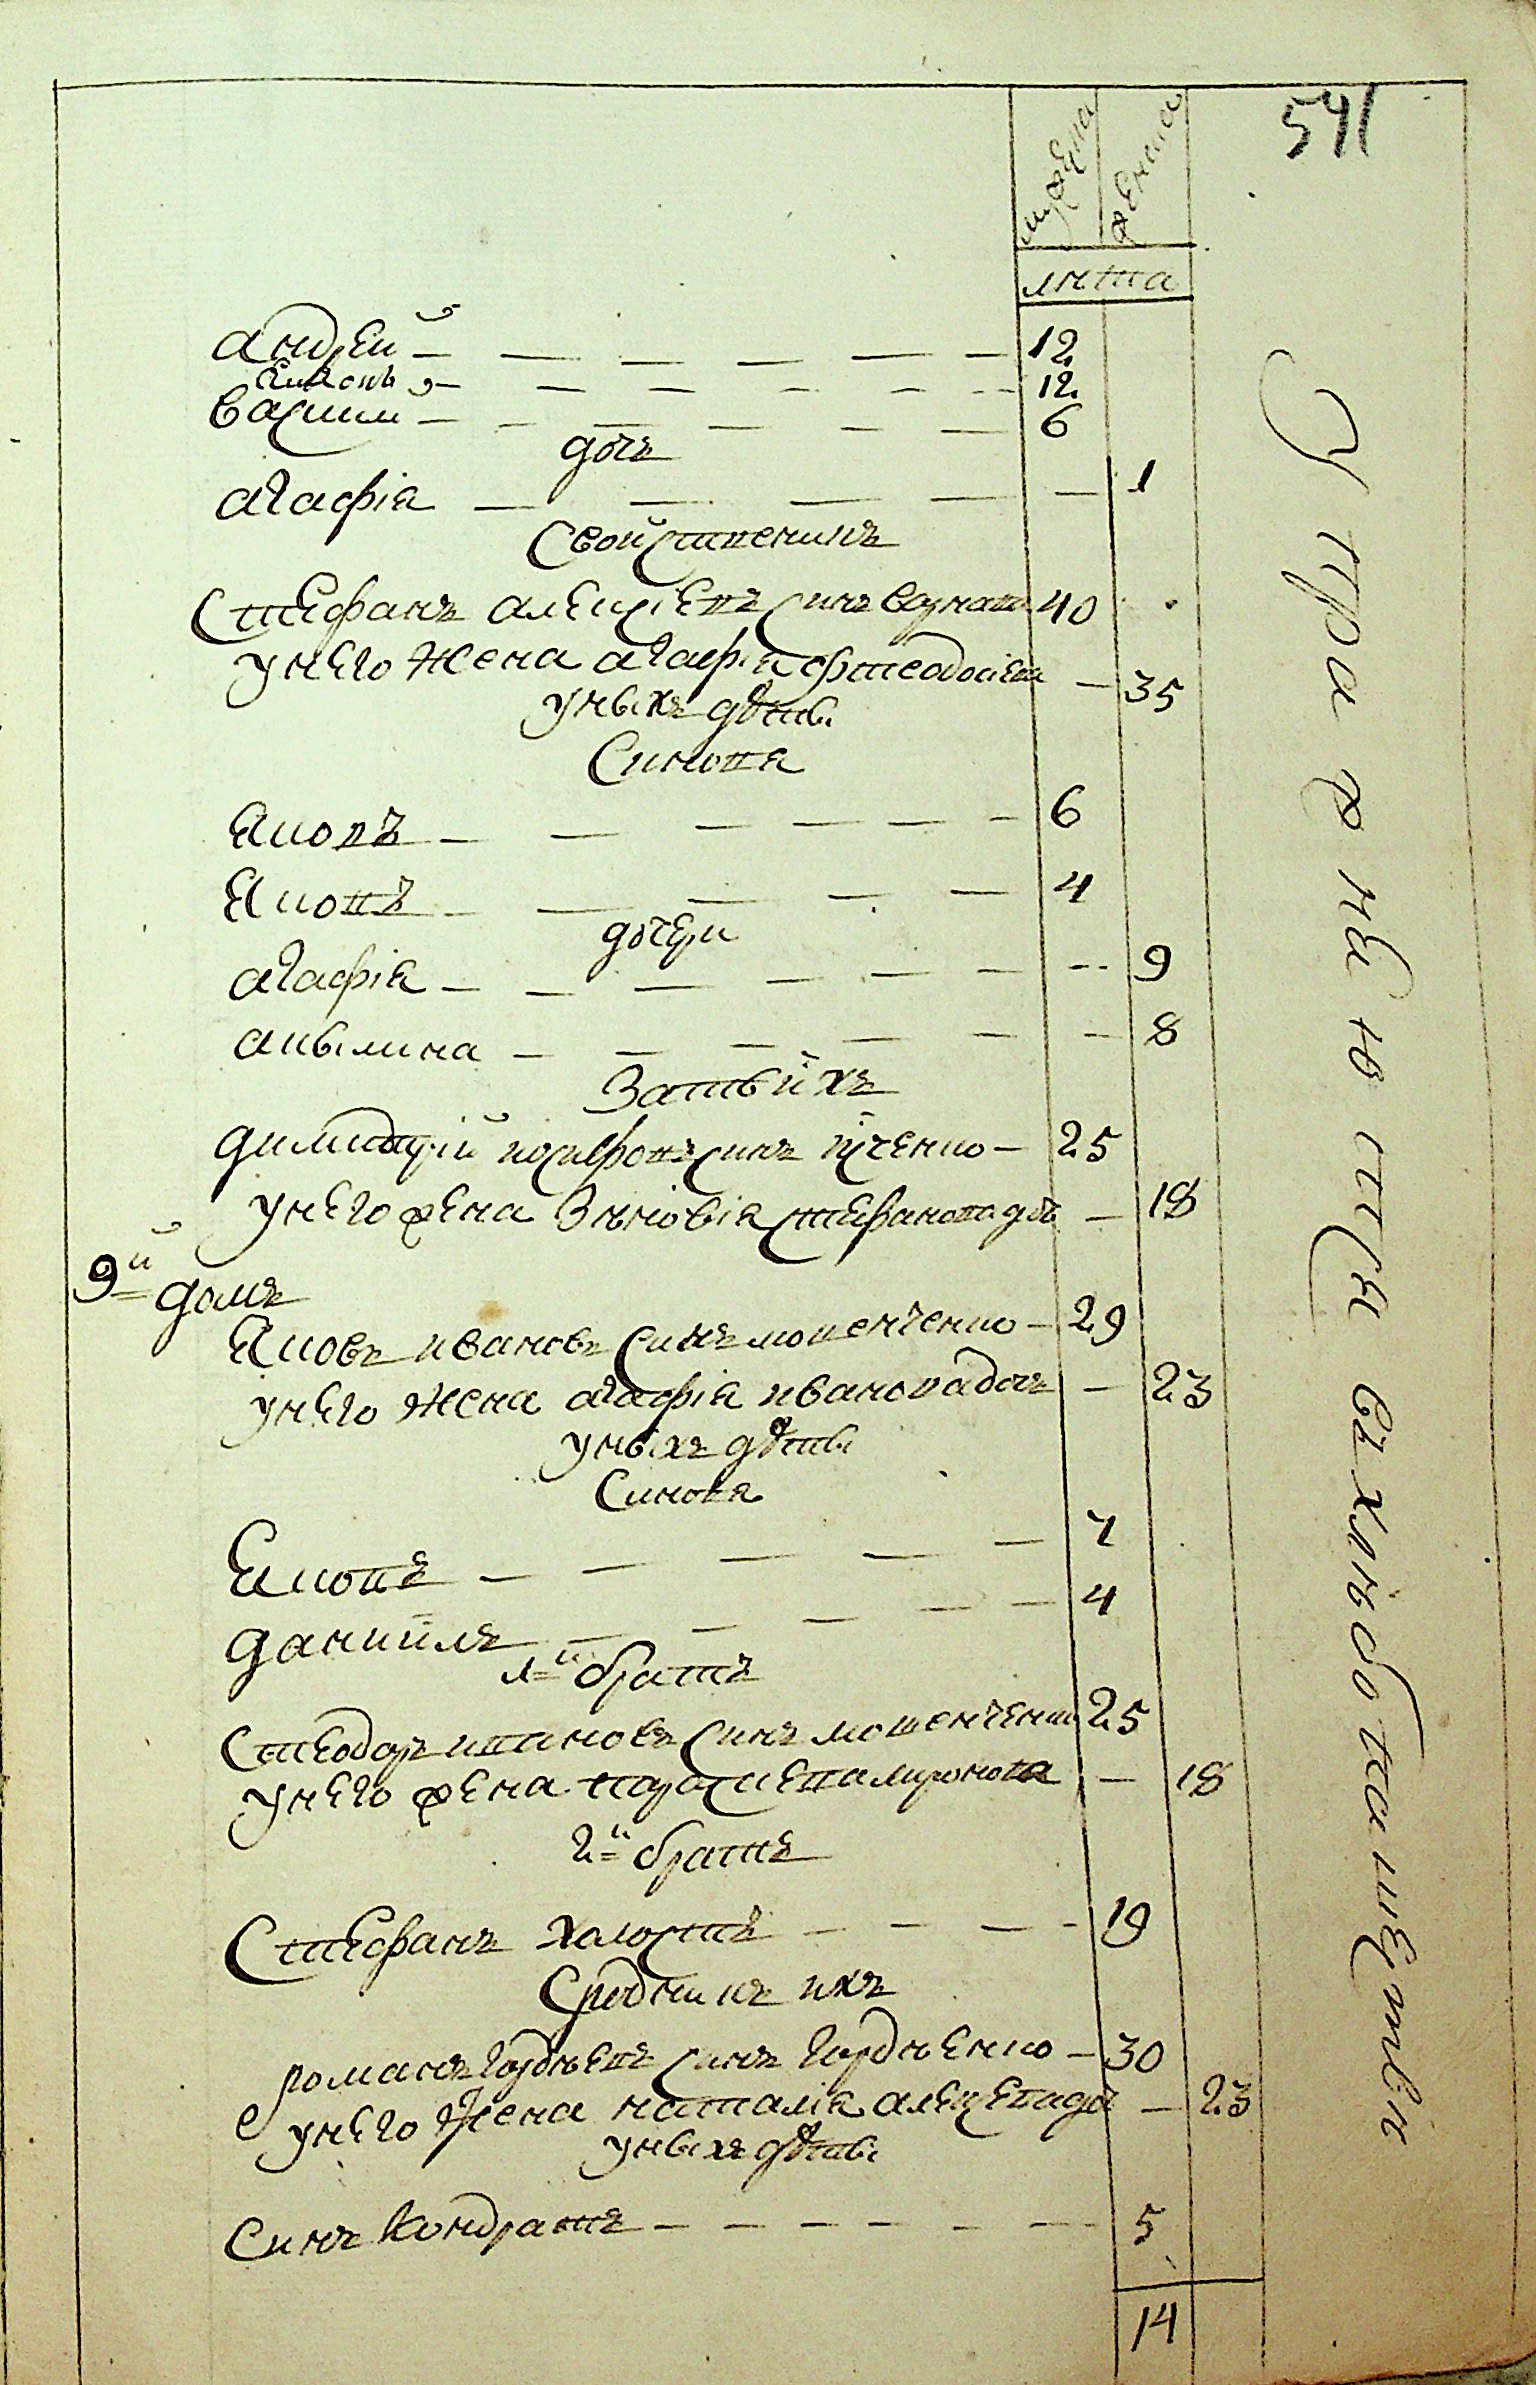 541
мужеска
женска
лѣта
андрей — 12
Яковъ — 12
василий — 6
дочъ
агафія — 1
Свойственикъ
Стефанъ алексѣевъ синъ 40
у него жена агафия фтеодосиева — 35
у ныхъ дѣты
Синовя
Яковъ — 6
Яковъ — 4
дочери
агафія — 9
акылина — 8
Зять ихъ
димитрій иосифовъ синъ — 25
у него жена Зѣновія стефанова дочъ — 18
9й домъ
Яковъ ивановъ синъ мошенченко — 29
у него жена агафія иванова дочъ — 23
у ныхъ дѣты
Синовя
Яковъ — 7
даниилъ — 4
1й братъ
фтеодоръ ивановъ синъ мошенченко 25
у него жена параскева миронова — 18
2й братъ
Стефанъ холостъ — 19
Сродникъ ихъ
романъ гордѣевъ синъ гордѣенко — 30
у него жена наталія алексеева дочъ — 23
у ныхъ дѣты
Синъ Кондратъ — 5
14